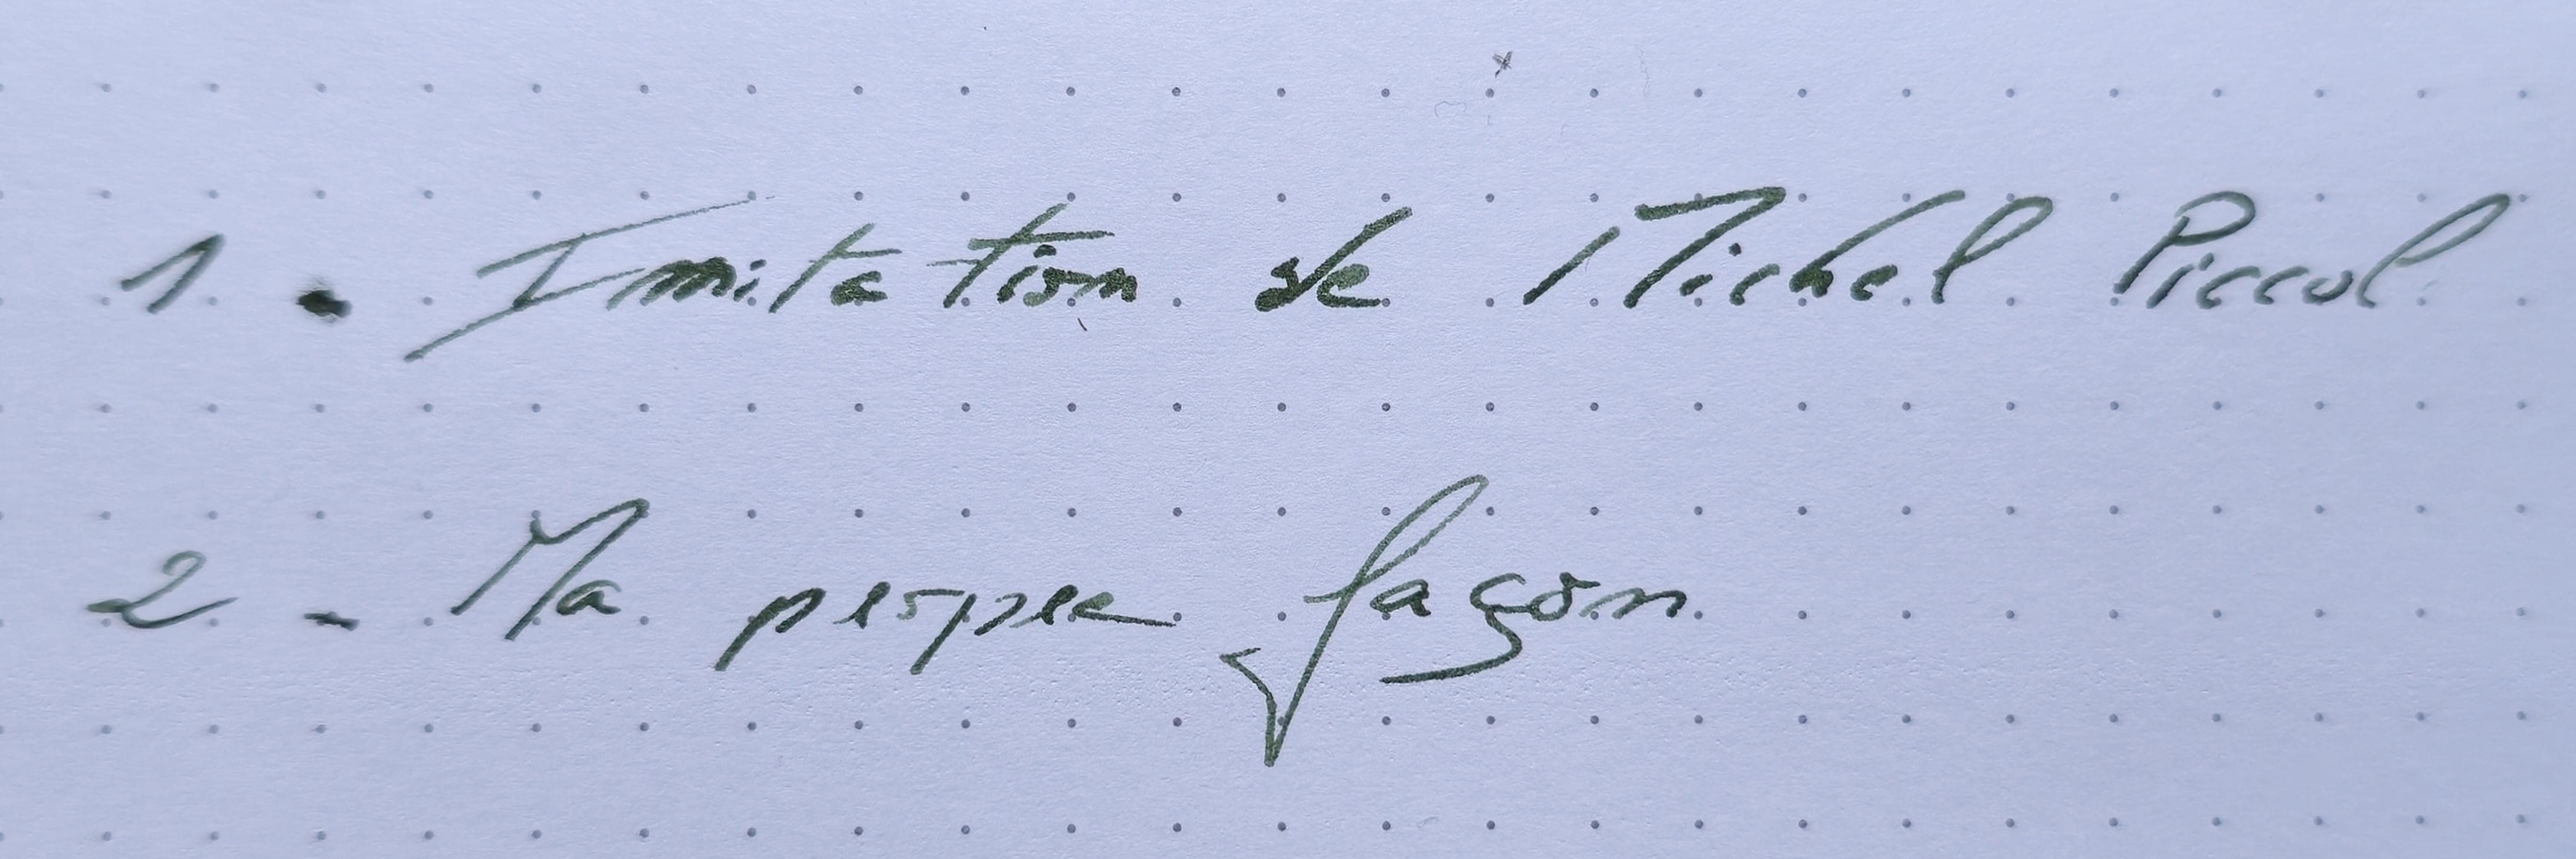 1. Imitation de Michel Piccol
2 - Ma propre façon